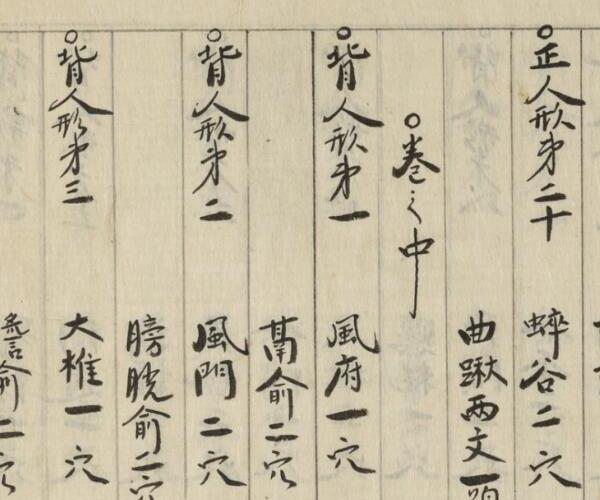 正人形第二十
蟀谷二穴
曲踿両文一
巻之中
背人形第一
風府一穴
膏俞二穴
背人形第二
風門二穴
膀胱俞二穴
背人形第三
大椎一穴
俞二穴